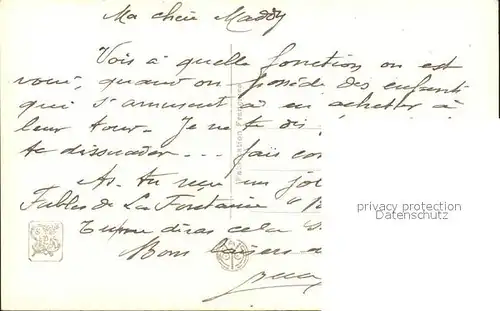 Ma chère Maddy
Vois à quelle fonction on est
voué, quand on possède des enfants
qui s'amusent à en acheter à
leur tour. Je ne te dis
te dissuader... fais co
As-tu reçu un jo
Fables de La Fontaine
Tu me diras cela
Bons baisers
privacy protection
Datenschutz